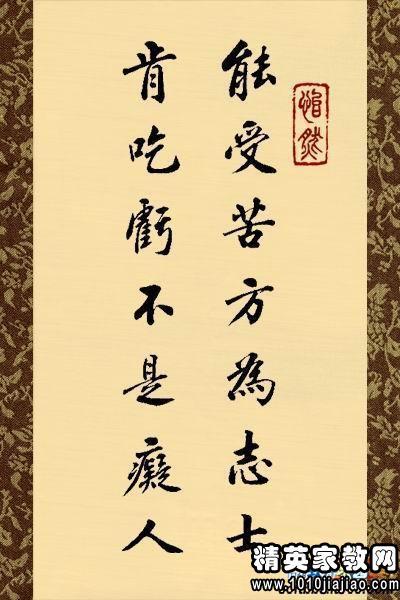 能受苦方為志士
肯吃虧不是癡人
精英家教网
www.1010jiajiao.com